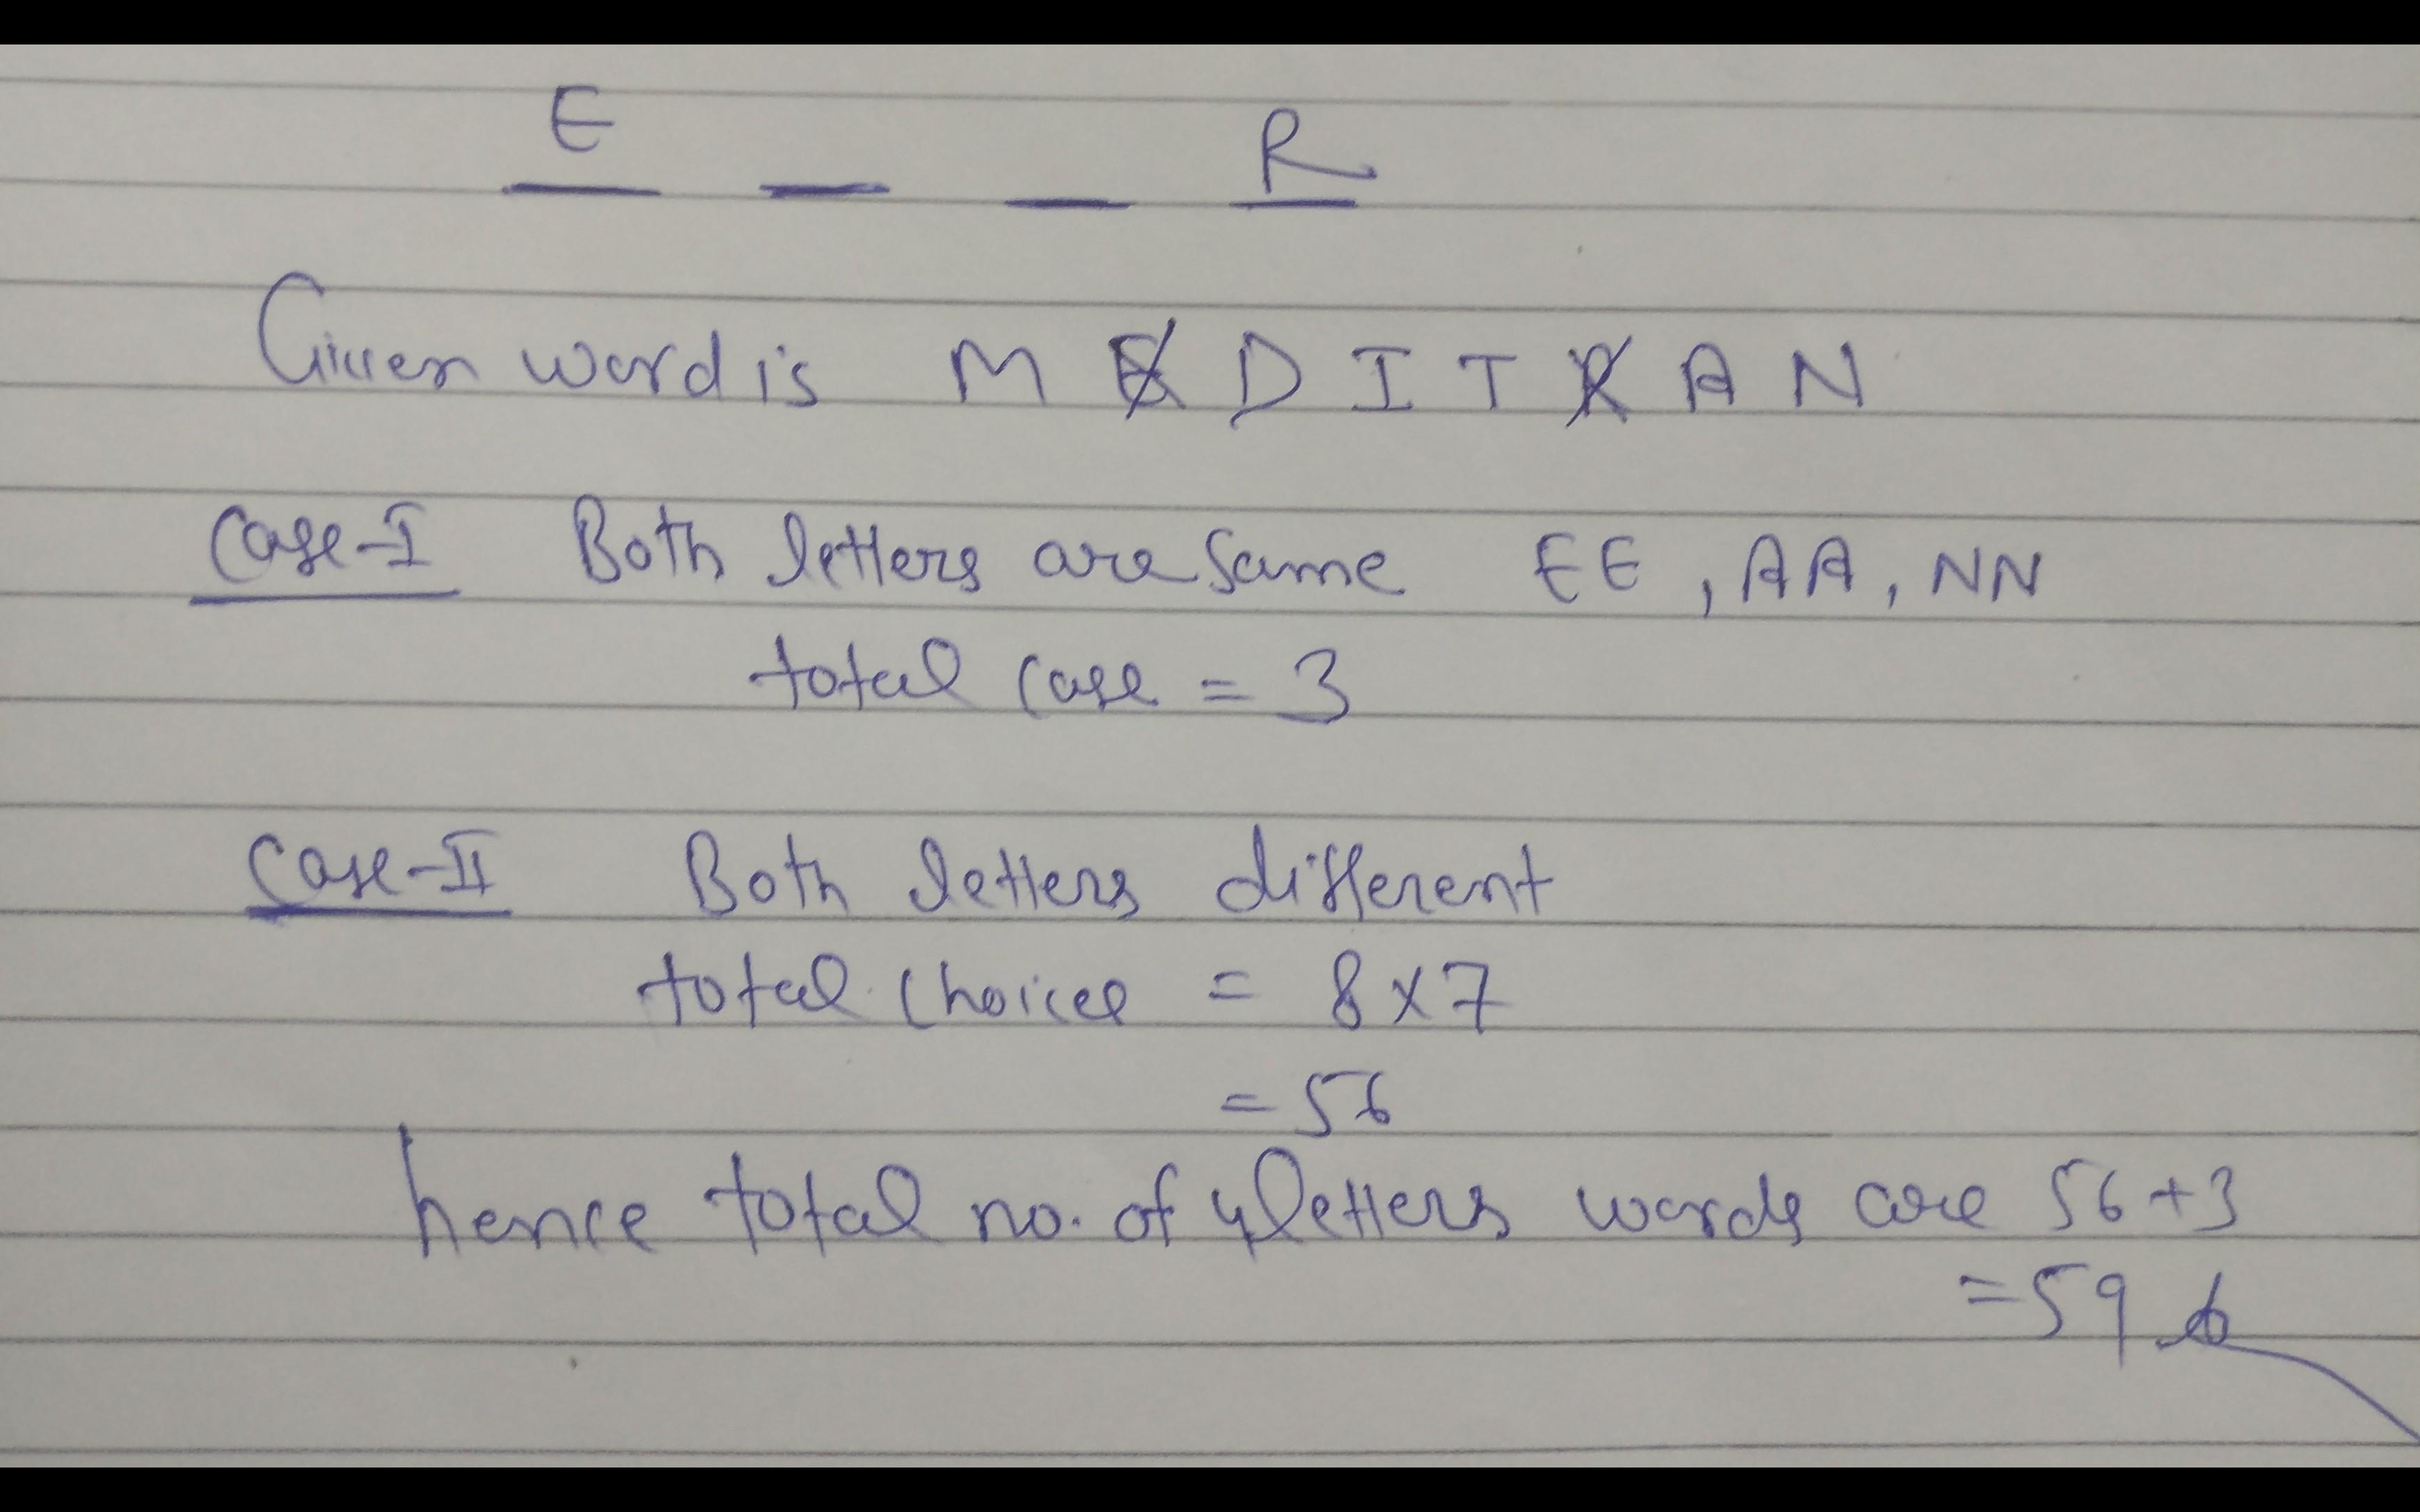 E _ _ R
Given word is M E D I T R A N
Case-I Both letters are same EE, AA, NN
total case = 3
Case-II Both letters different
total choice = 8×7
= 56
hence total no. of 4 letters words are 56+3
= 59